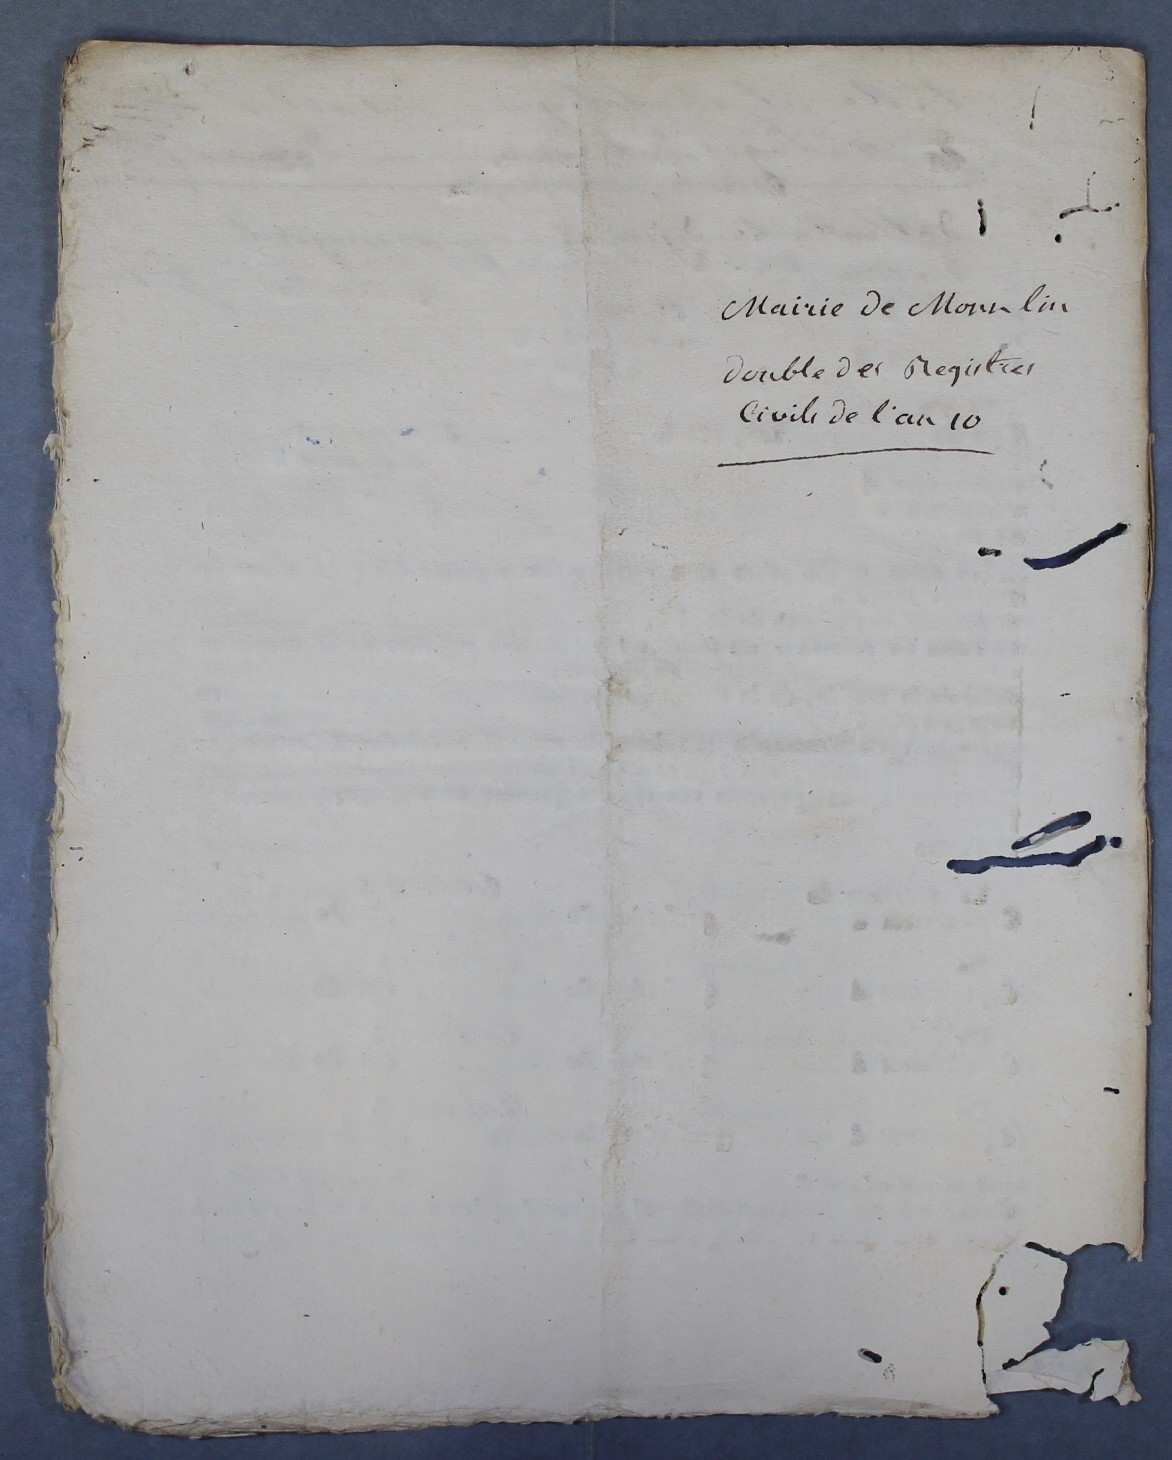 Mairie de Monulin
double des Registres
Civils de l'an 10